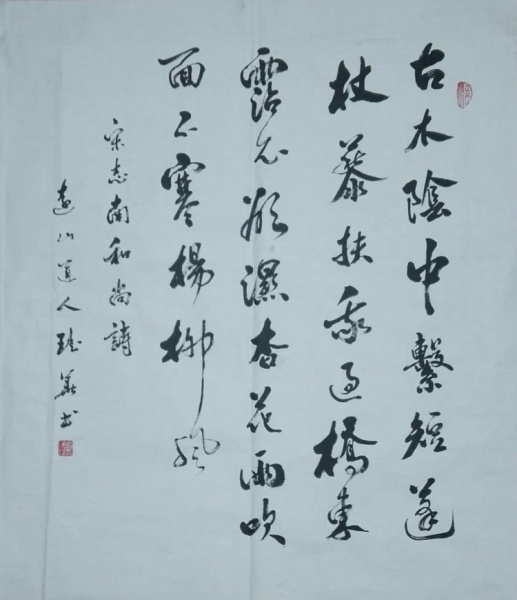 古木陰中繫短蓬
杖藜扶我過橋東
霑衣欲濕杏花雨吹
面不寒楊柳風
宋志南和尚詩
山道人華书